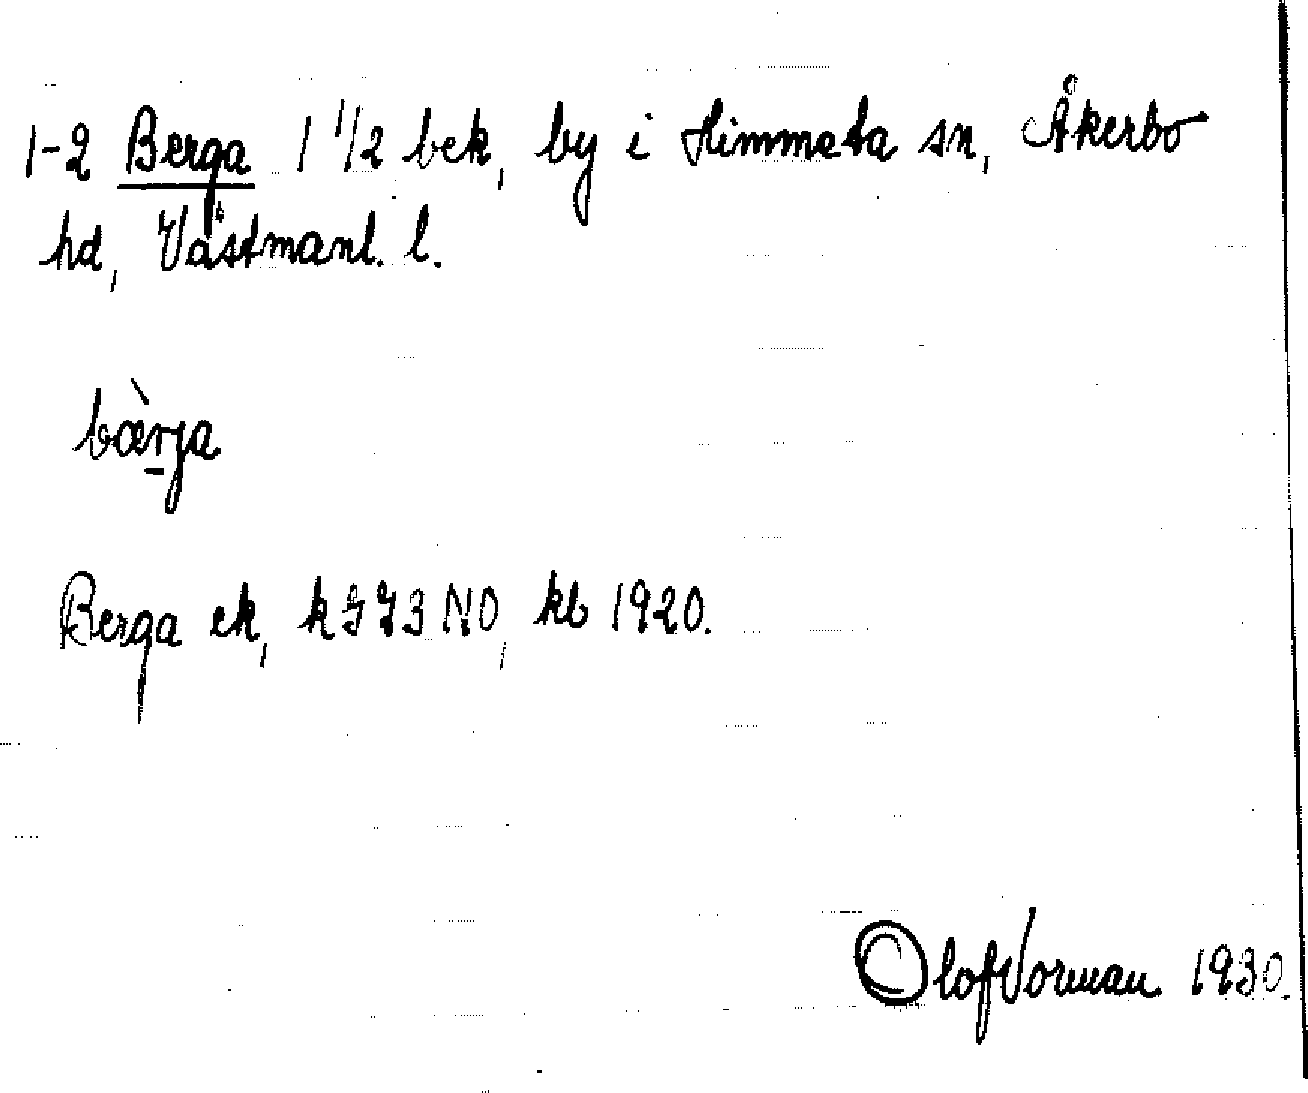 1-2 Berga 1 1/2 bek, by i Himmeta sn, Åkerbo
hd, Västmanl. l.
bæ̀rja
Berga ek, k J 73 NO, kb 1920.
Olof Vorman 1930.